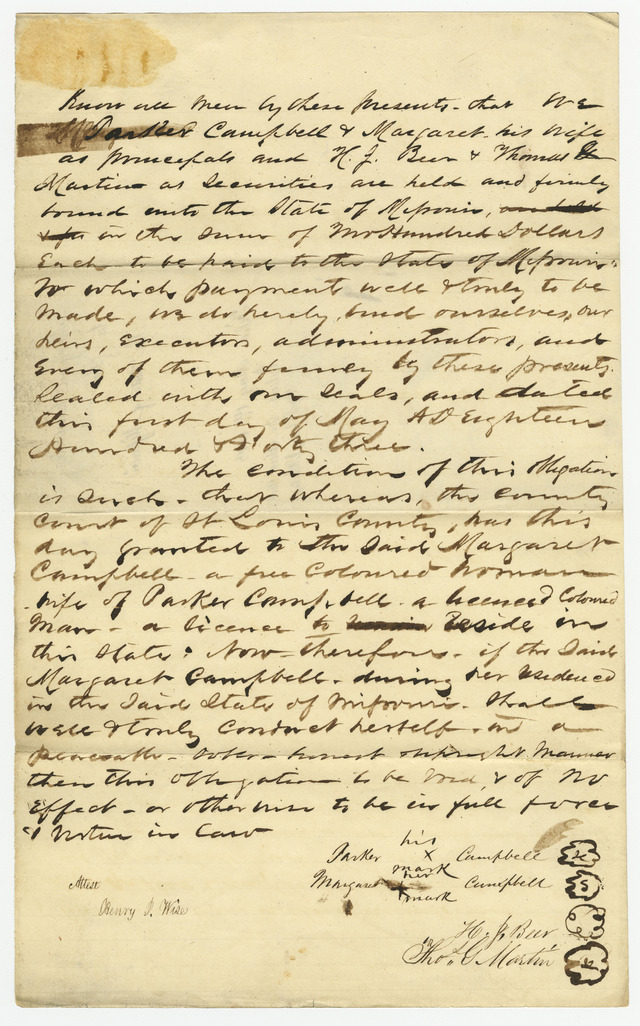 Know all men by these presents - that We
Parker Campbell & Margaret his wife
as principals and H. J. Beer & Thomas G
Martin as Securities are held and firmly
bound unto the State of Missouri,
in the sum of Two Hundred Dollars
Each to be paid to the State of Missouri
To which payment well & truly to be
made, we do hereby bind ourselves, our
heirs, executors, administrators, and
Every of them firmly by these presents.
Sealed with our seals, and dated
this first day of May AD Eighteen
Hundred & Forty three.
The condition of this obligation
is such - that whereas, the county
court of St Louis County, has this
day granted to the Said Margaret
Campbell - a free Coloured Woman
wife of Parker Campbell - a licenced Coloured
Man - a licence to Reside in
this State: Now therefore - if the Said
Margaret Campbell - during her residence
in the Said State of Missouri - Shall
well & truly Conduct herself - in a
peaceable - sober - honest upright Manner
then this Obligation to be Void, & of No
Effect - or otherwise to be in full force
& Virtue in Law
his
Parker x Campbell
mark
her
Margaret x Campbell
mark
Attest
Henry J. Wise
H. J. Beer
Thos. G. Martin